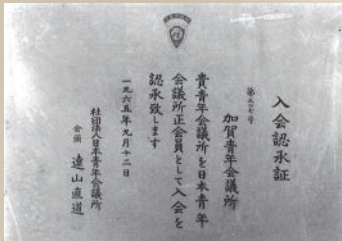 入会認承証
加賀青年会議所
貴青年会議所を日本青年
会議所正会員として入会を
認承致します
一九六五年九月十二日
社団法人日本青年会議所
会頭 遠山直道